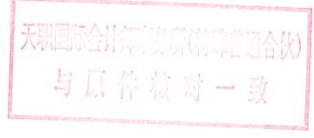 天职国际会计师事务所(特殊普通合伙)
与原件核对一致